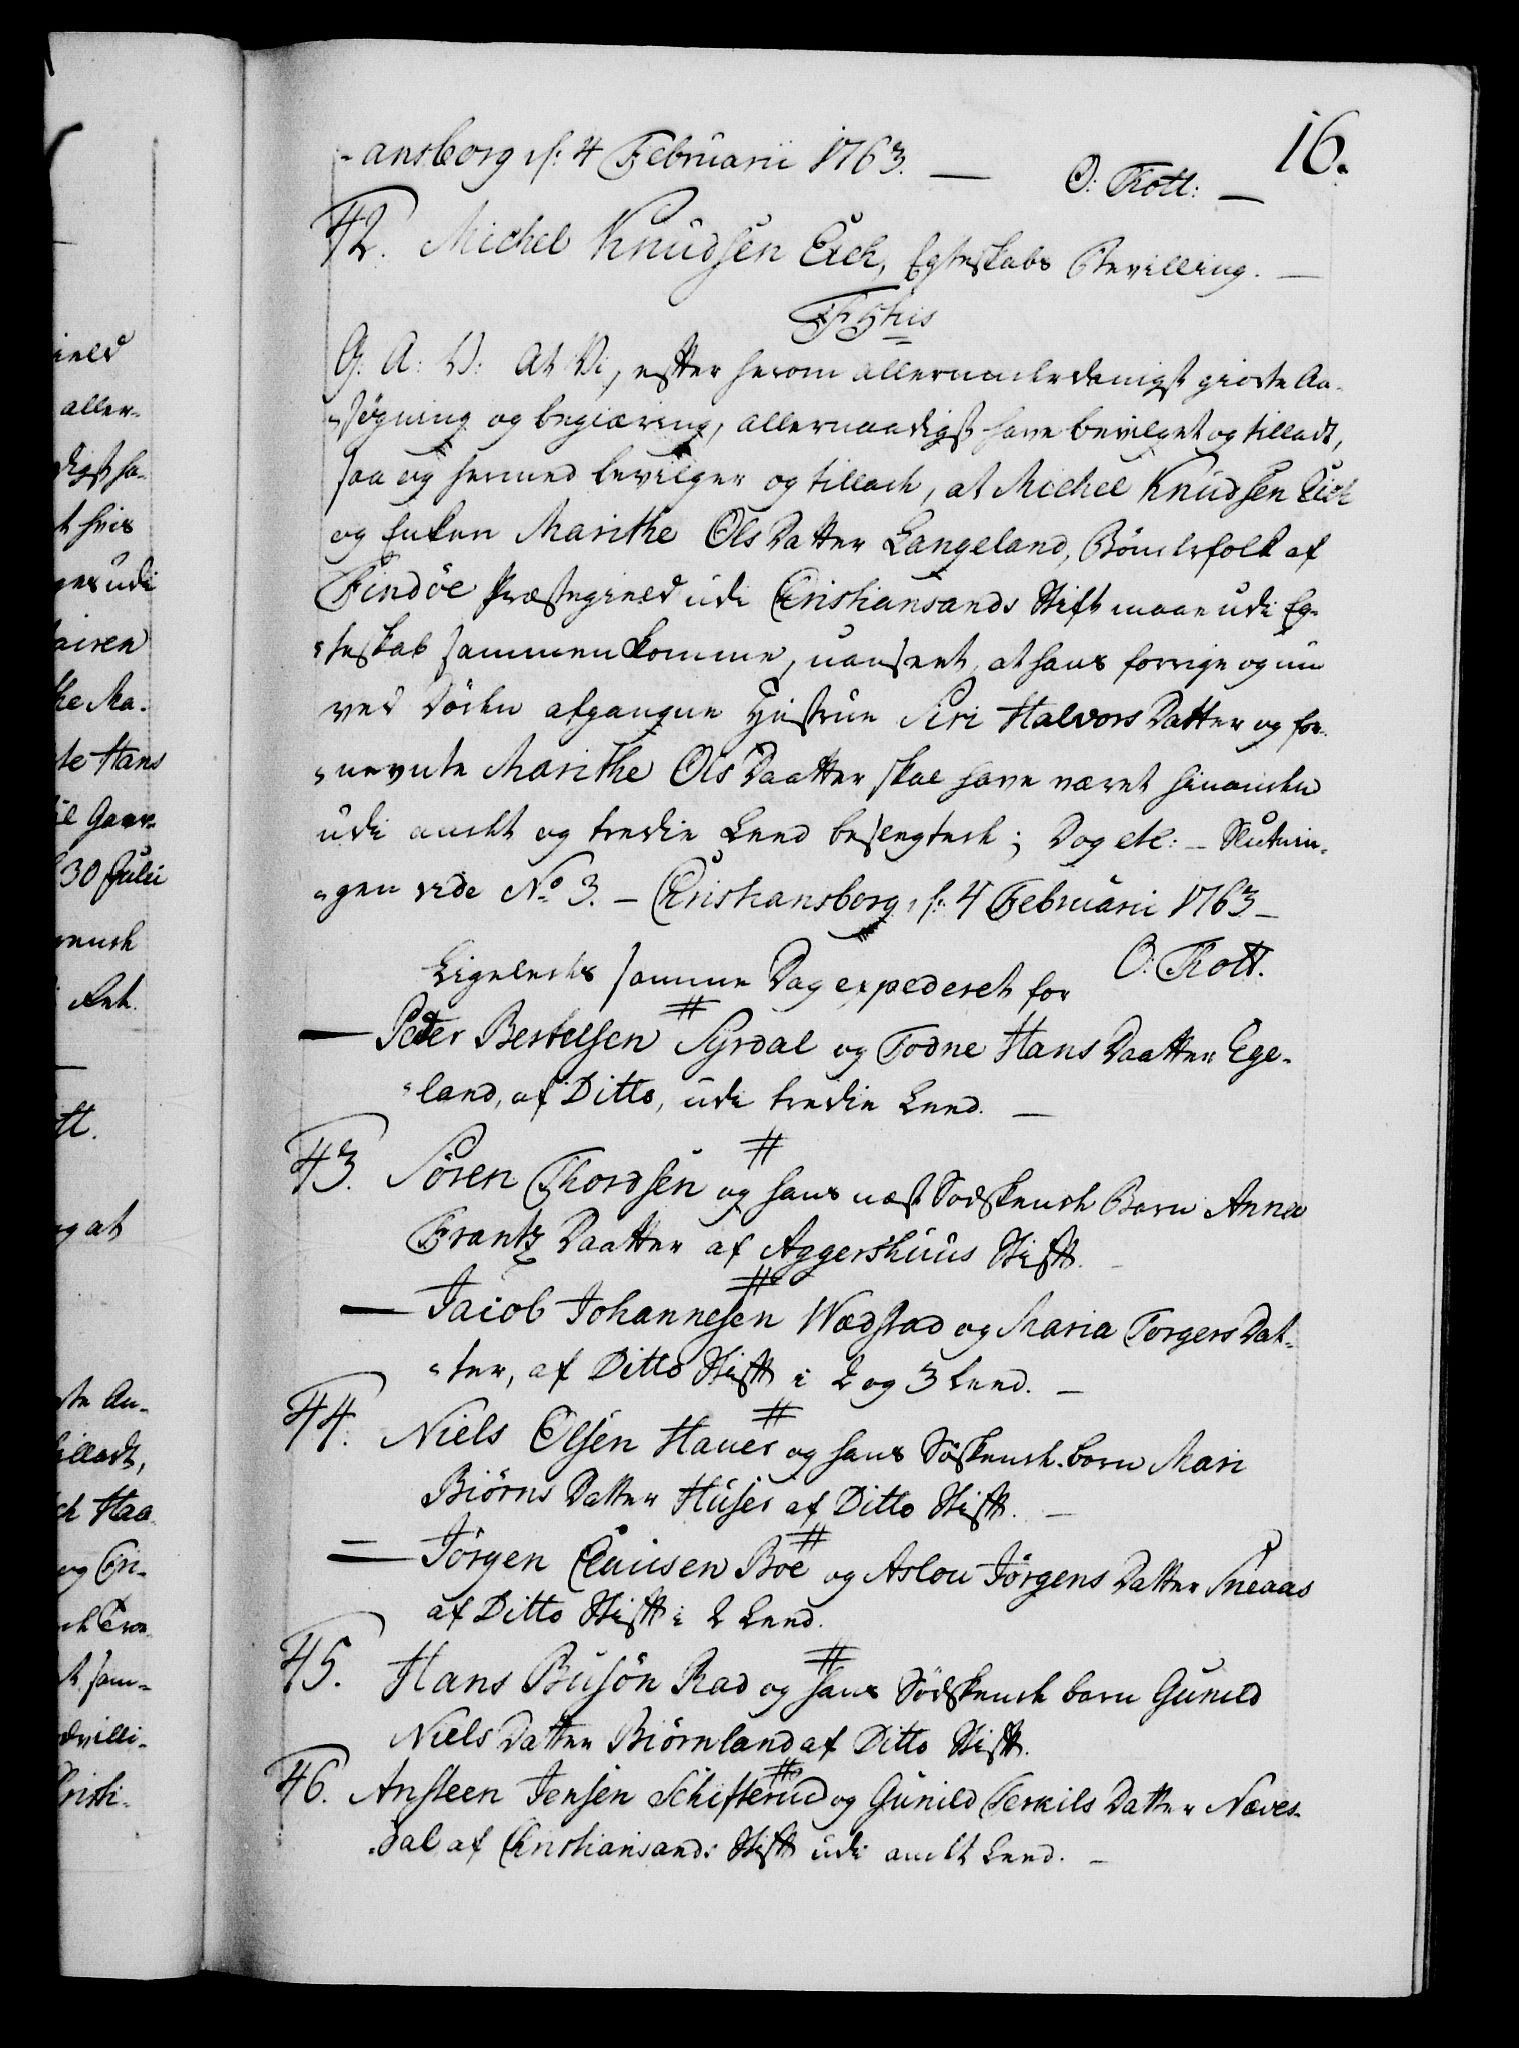 16.
-ansborg d: 4 Februarii 1763. —
O: Thott: —
42. Michel Knudsen Eick, Egteskabs Bevilling. —
F 5this
G: A: V: At Vi, efter herom allerunderdanigst giorte An-
søgning og begiæring, allernaadigst have bevilget og tilladt,
saa og hermed bevilger og tillade, at Michel Knudsen Eick
og Enken Marithe Ols Datter Langeland, Bönderfolk af
Findöe Præstegield udi Christiansands Stift maae udi Eg-
teskab sammenkomme, uanseet, at hans forrige og nu
ved Döden afgangne Hustrue Siri Halvors Datter og for-
nevnte Marithe Ols Daatter skal have været hinanden
udi andet og tredie Leed beslegtede; Dog etc: - Slutnin-
gen vide No 3. - Christiansborg, d: 4 Februarii 1763 -
O: Thott.
Ligeledes samme Dag expederet for
— Peder Bertelsen Syrdal og Todne Hans Daatter Ege-
land, af Ditto, udi tredie Leed. —
43. Sören Thordsen og hans næst Sodskende Barn Anna
Frantz Daatter af Aggershuus Stift. —
— Jacob Johannesen Wædstad og Maria Torgers Dat-
ter, af Ditto Stift i 2 og 3 Leed. —
44. Niels Olsen Hauer og hans Söskende-barn Mari
Biörns Datter Huser af Ditto Stift. —
— Jörgen Clausen Boe og Aslou Jörgens Datter Sneaas
af Ditto Stift i 2 Leed.
45. Hans Busön Rad og hans Södskende barn Gunild
Niels Datter Biörnland af Ditto Stift.
46. Ansteen Jensen Schifterud og Gunild Terkils Datter Næves-
dal af Christiansands Stift udi andet Leed. —